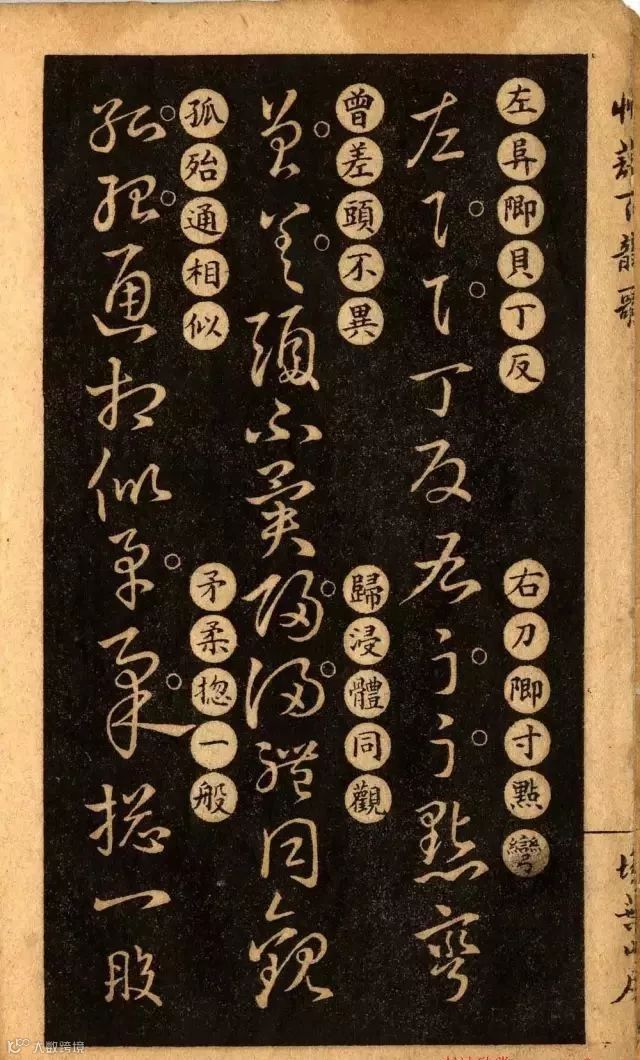 艸訣百韻歌
掃葉山房
左阜卽貝丁反
右刀卽寸點彎
左阜貝丁反右刀寸點彎
曾差頭不異
歸浸體同觀
曾差頭不異歸浸體同觀
孤殆通相似
矛柔揔一般
孤殆通相似矛柔揔一般
大数跨境